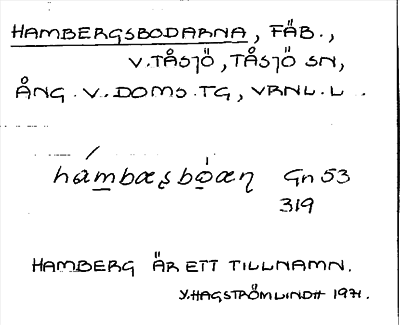 HAMBERGSBODARNA, FÄB.,
V. TÅSJÖ, TÅSJÖ SN,
ÅNG. V. DOMS. TG, VRNL. L.
hámbæʂbo̲̍æɳ Gn 53
319
HAMBERG ÄR ETT TILLNAMN.
Y. HAGSTRÖM LINDH 1971.